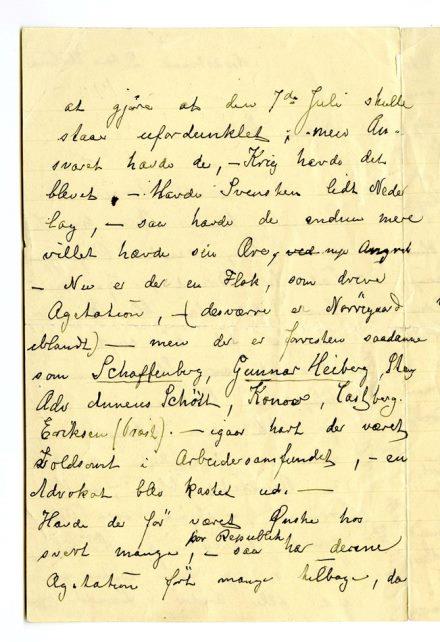 at gjøre at den 7de Juli skulle
staa ufordunklet; men An-
svaret havde de, – Krig havde det
blevet, – Havde Svensken lidt Neder
lag, – saa havde de endnu mere
villet hævde sin Ære, ved nye Angreb
– Nu er der en Flok, som drive
Agitation, – (desværre er Norregaard
iblandt) – men der er forresten saadanne
som Schaffenberg, Gunnar Heiberg,
Adv Schött, Konow, Castberg.
Eriksen – igaar hart der været
Voldsomt i Arbeidersamfundet, – en
Advokat blev kastet ud. –
Havde der før været Ønske hos
svert mange, for Republik – saa har denne
Agitation ført mange tilbage, da